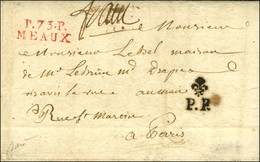 P.73.P.
MEAUX
Monsieur
Monsieur Lebel maison
de Mr Lebrun md drapier
vis avis la rue
Rue St Martin
P.P.
a Paris